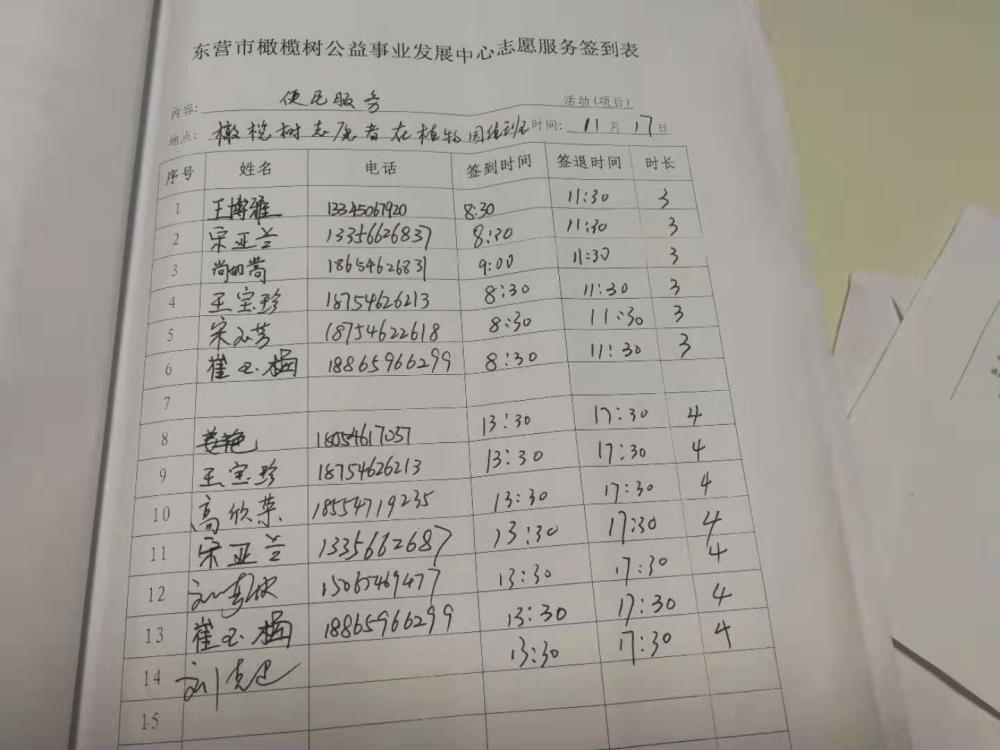 东营市橄榄树公益事业发展中心志愿服务签到表
内容: 便民服务 活动(项目)
地点: 橄榄树志愿者在植物园值班 时间: 11月17日
序号 姓名 电话 签到时间 签退时间 时长
1 王博雅 13345067920 8:30 11:30 3
2 宋亚兰 13356626837 8:30 11:30 3
3 18654626831 9:00 11:30 3
4 王宝珍 18754626213 8:30 11:30 3
5 宋 18754622618 8:30 11:30 3
6 崔玉梅 18865966299 8:30 11:30 3
7
8 姜艳 18054617037 13:30 17:30 4
9 王宝珍 18754626213 13:30 17:30 4
10 高欣荣 18554719235 13:30 17:30 4
11 宋亚兰 1335662687 13:30 17:30 4
12 刘 15067469477 13:30 17:30 4
13 崔玉梅 18865966299 13:30 17:30 4
14 刘 13:30 17:30 4
15